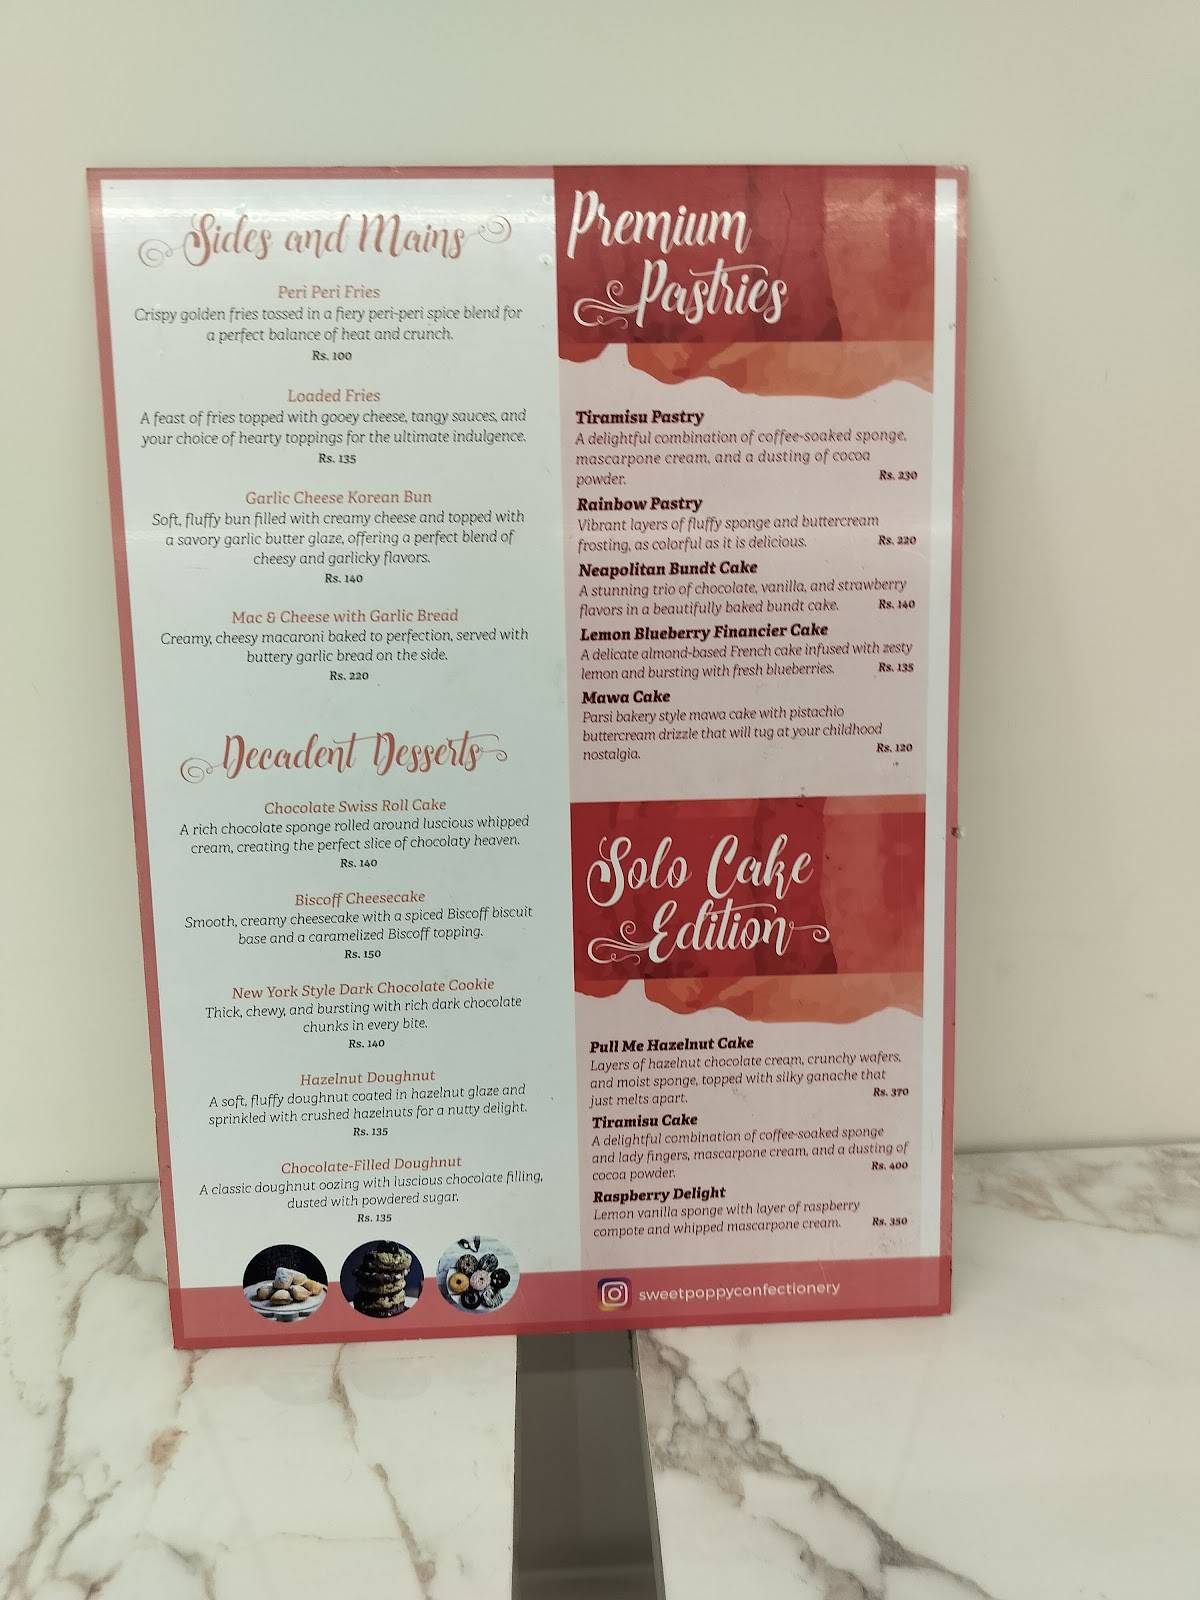 Sides and Mains
Peri Peri Fries
Crispy golden fries tossed in a fiery peri-peri spice blend for
a perfect balance of heat and crunch.
Rs. 100
Loaded Fries
A feast of fries topped with gooey cheese, tangy sauces, and
your choice of hearty toppings for the ultimate indulgence.
Rs. 135
Garlic Cheese Korean Bun
Soft, fluffy bun filled with creamy cheese and topped with
a savory garlic butter glaze, offering a perfect blend of
cheesy and garlicky flavors.
Rs. 140
Mac & Cheese with Garlic Bread
Creamy, cheesy macaroni baked to perfection, served with
buttery garlic bread on the side.
Rs. 220
Decadent Desserts
Chocolate Swiss Roll Cake
A rich chocolate sponge rolled around luscious whipped
cream, creating the perfect slice of chocolaty heaven.
Rs. 140
Biscoff Cheesecake
Smooth, creamy cheesecake with a spiced Biscoff biscuit
base and a caramelized Biscoff topping.
Rs. 150
New York Style Dark Chocolate Cookie
Thick, chewy, and bursting with rich dark chocolate
chunks in every bite.
Rs. 140
Hazelnut Doughnut
A soft, fluffy doughnut coated in hazelnut glaze and
sprinkled with crushed hazelnuts for a nutty delight.
Rs. 135
Chocolate-Filled Doughnut
A classic doughnut oozing with luscious chocolate filling,
dusted with powdered sugar.
Rs. 135
Premium
Pastries
Tiramisu Pastry
A delightful combination of coffee-soaked sponge,
mascarpone cream, and a dusting of cocoa
powder. Rs. 230
Rainbow Pastry
Vibrant layers of fluffy sponge and buttercream
frosting, as colorful as it is delicious. Rs. 220
Neapolitan Bundt Cake
A stunning trio of chocolate, vanilla, and strawberry
flavors in a beautifully baked bundt cake. Rs. 140
Lemon Blueberry Financier Cake
A delicate almond-based French cake infused with zesty
lemon and bursting with fresh blueberries. Rs. 135
Mawa Cake
Parsi bakery style mawa cake with pistachio
buttercream drizzle that will tug at your childhood
nostalgia. Rs. 120
Solo Cake
Edition
Pull Me Hazelnut Cake
Layers of hazelnut chocolate cream, crunchy wafers,
and moist sponge, topped with silky ganache that
just melts apart. Rs. 370
Tiramisu Cake
A delightful combination of coffee-soaked sponge
and lady fingers, mascarpone cream, and a dusting of
cocoa powder. Rs. 400
Raspberry Delight
Lemon vanilla sponge with layer of raspberry
compote and whipped mascarpone cream. Rs. 350
sweetpoppyconfectionery